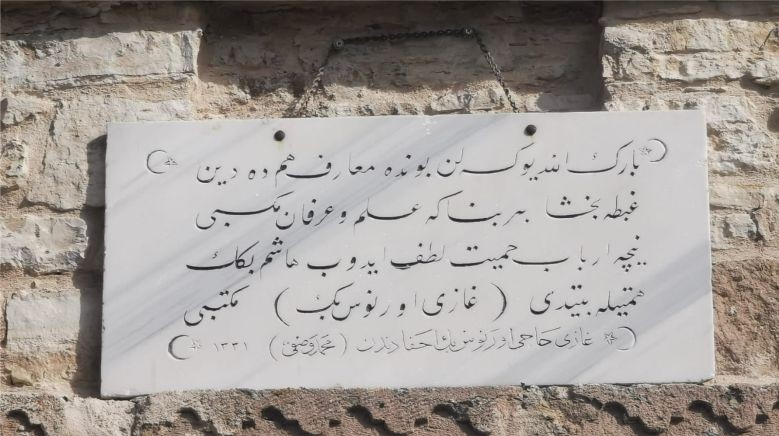 بارك الله يوكسلن بونده معارف هم ده دين
غبطه بخشا بر بنا كه علم و عرفان مكسبى
نيچه ارباب حميت لطف ايدوب هاشم بكك
همتيله بيتدى ( غازى اورنوس بك ) مكتبى
غازى حاجى اورنوس بك احفادندن ( محمد وصفى ) ١٣٣١